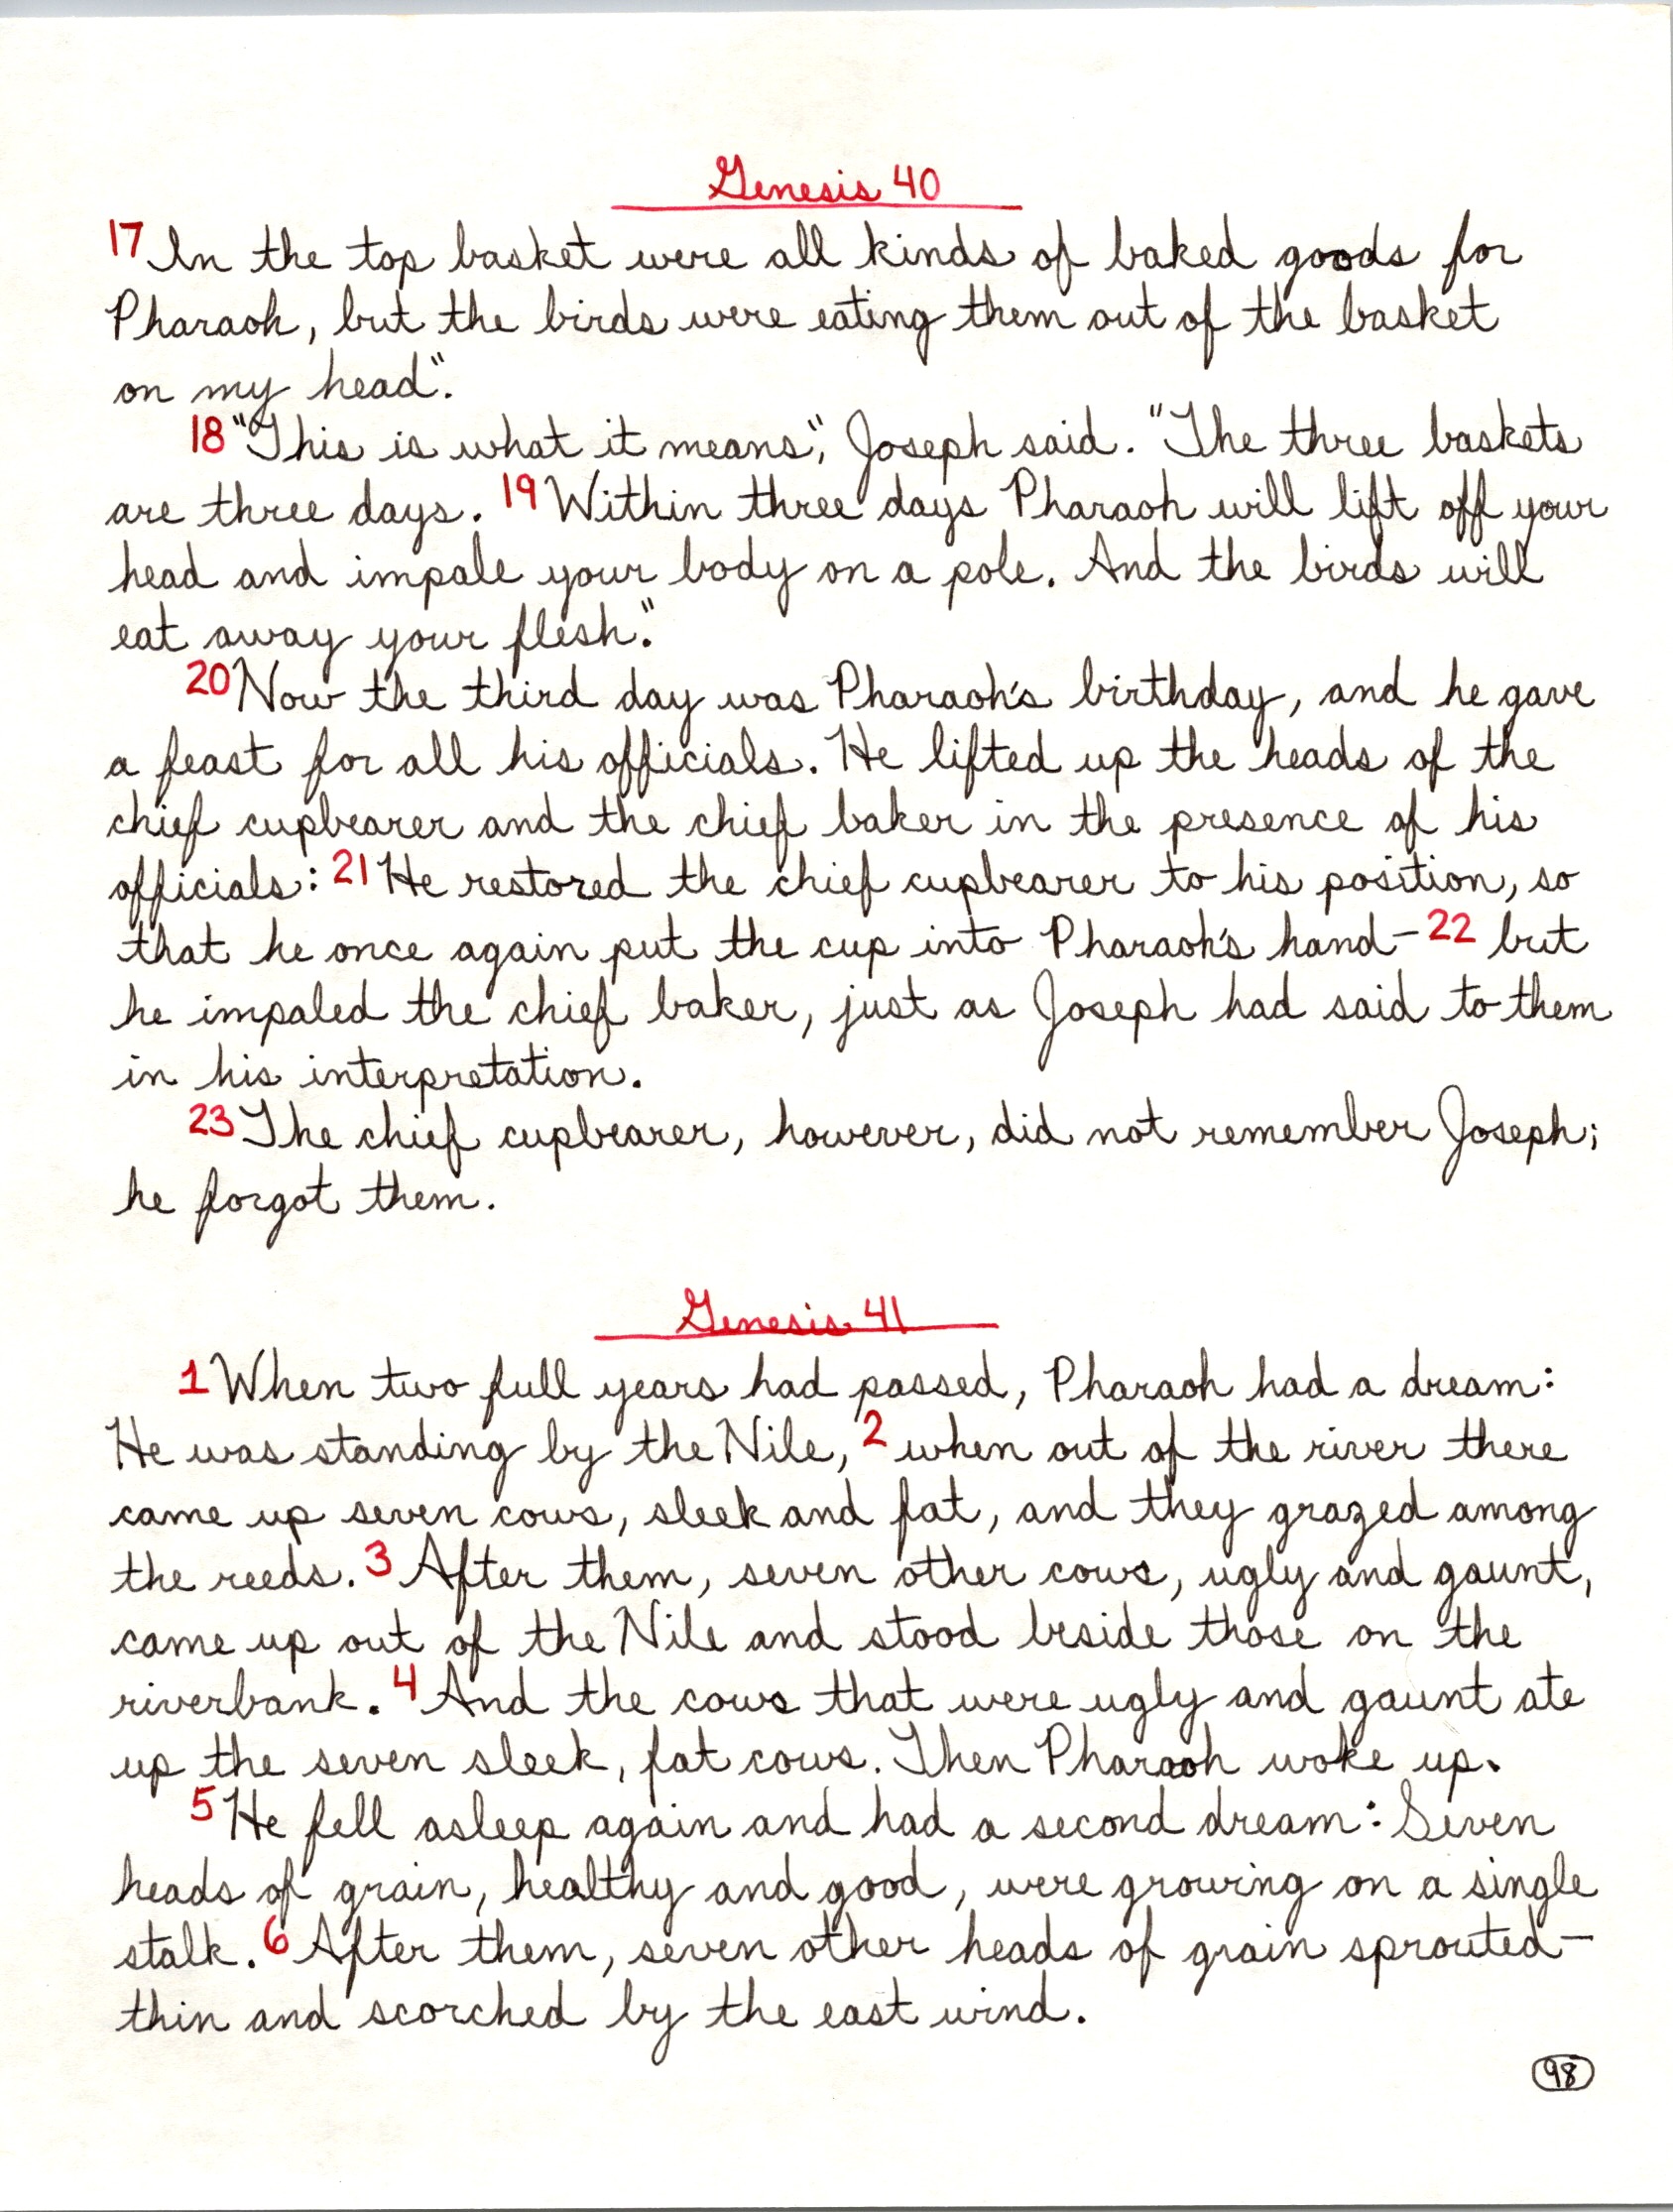 Genesis 40
17 In the top basket were all kinds of baked goods for
Pharaoh, but the birds were eating them out of the basket
on my head".
18 "This is what it means," Joseph said. "The three baskets
are three days. 19 Within three days Pharaoh will lift off your
head and impale your body on a pole. And the birds will
eat away your flesh."
20 Now the third day was Pharaoh's birthday, and he gave
a feast for all his officials. He lifted up the heads of the
chief cupbearer and the chief baker in the presence of his
officials: 21 He restored the chief cupbearer to his position, so
that he once again put the cup into Pharaoh's hand- 22 but
he impaled the chief baker, just as Joseph had said to them
in his interpretation.
23 The chief cupbearer, however, did not remember Joseph;
he forgot them.
Genesis 41
1 When two full years had passed, Pharaoh had a dream:
He was standing by the Nile, 2 when out of the river there
came up seven cows, sleek and fat, and they grazed among
the reeds. 3 After them, seven other cows, ugly and gaunt,
came up out of the Nile and stood beside those on the
riverbank. 4 And the cows that were ugly and gaunt ate
up the seven sleek, fat cows. Then Pharaoh woke up.
5 He fell asleep again and had a second dream: Seven
heads of grain, healthy and good, were growing on a single
stalk. 6 After them, seven other heads of grain sprouted-
thin and scorched by the east wind.
98